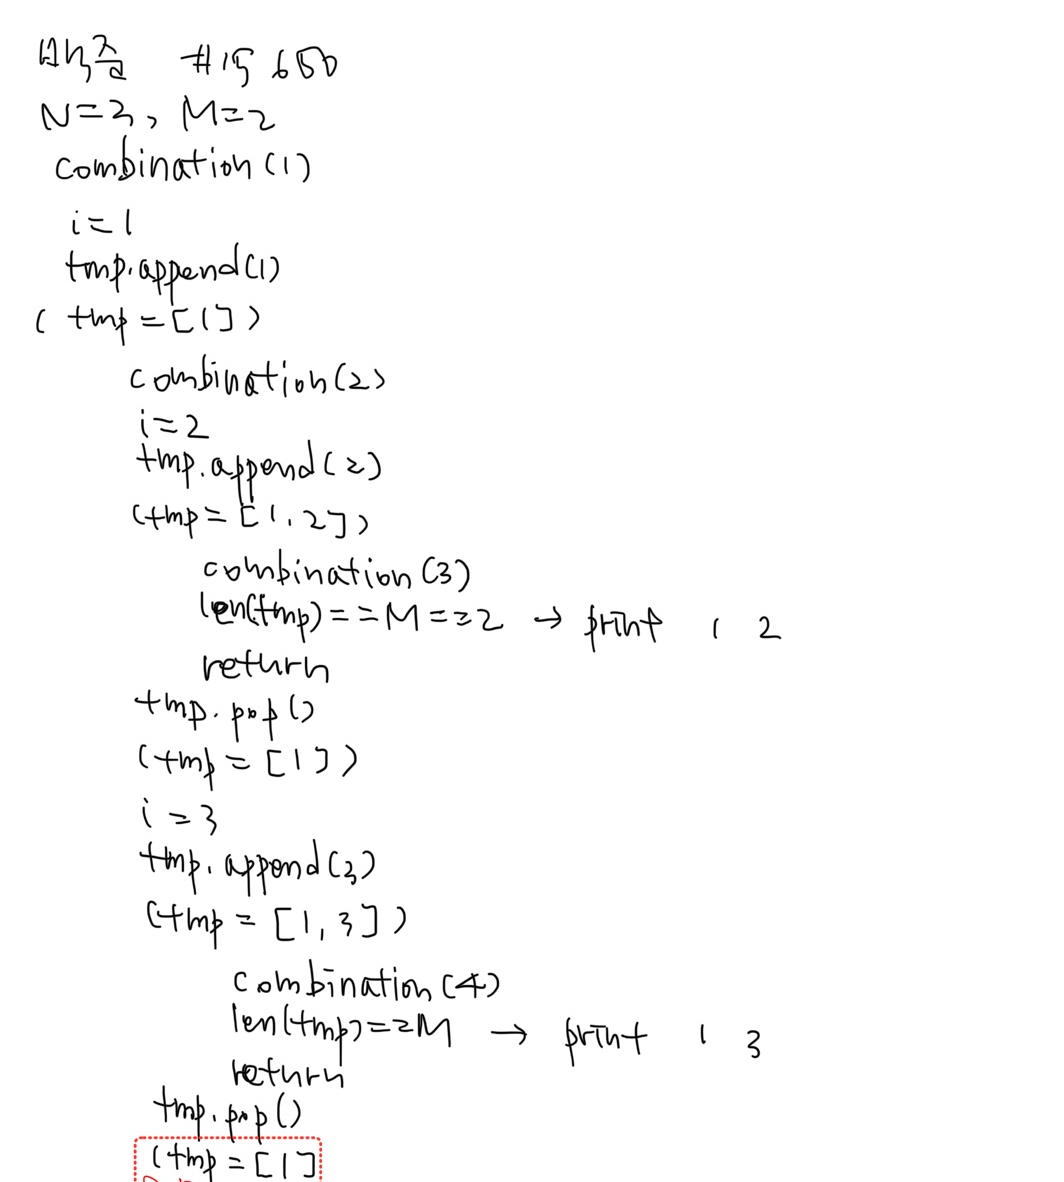 백준 #15650
N=3, M=2
combination(1)
i=1
tmp.append(1)
(tmp=[1])
combination(2)
i=2
tmp.append(2)
(tmp=[1,2])
combination(3)
len(tmp)==M==2 → print 1 2
return
tmp.pop()
(tmp=[1])
i=3
tmp.append(3)
(tmp=[1,3])
combination(4)
len(tmp)==M → print 1 3
return
tmp.pop()
(tmp=[1]